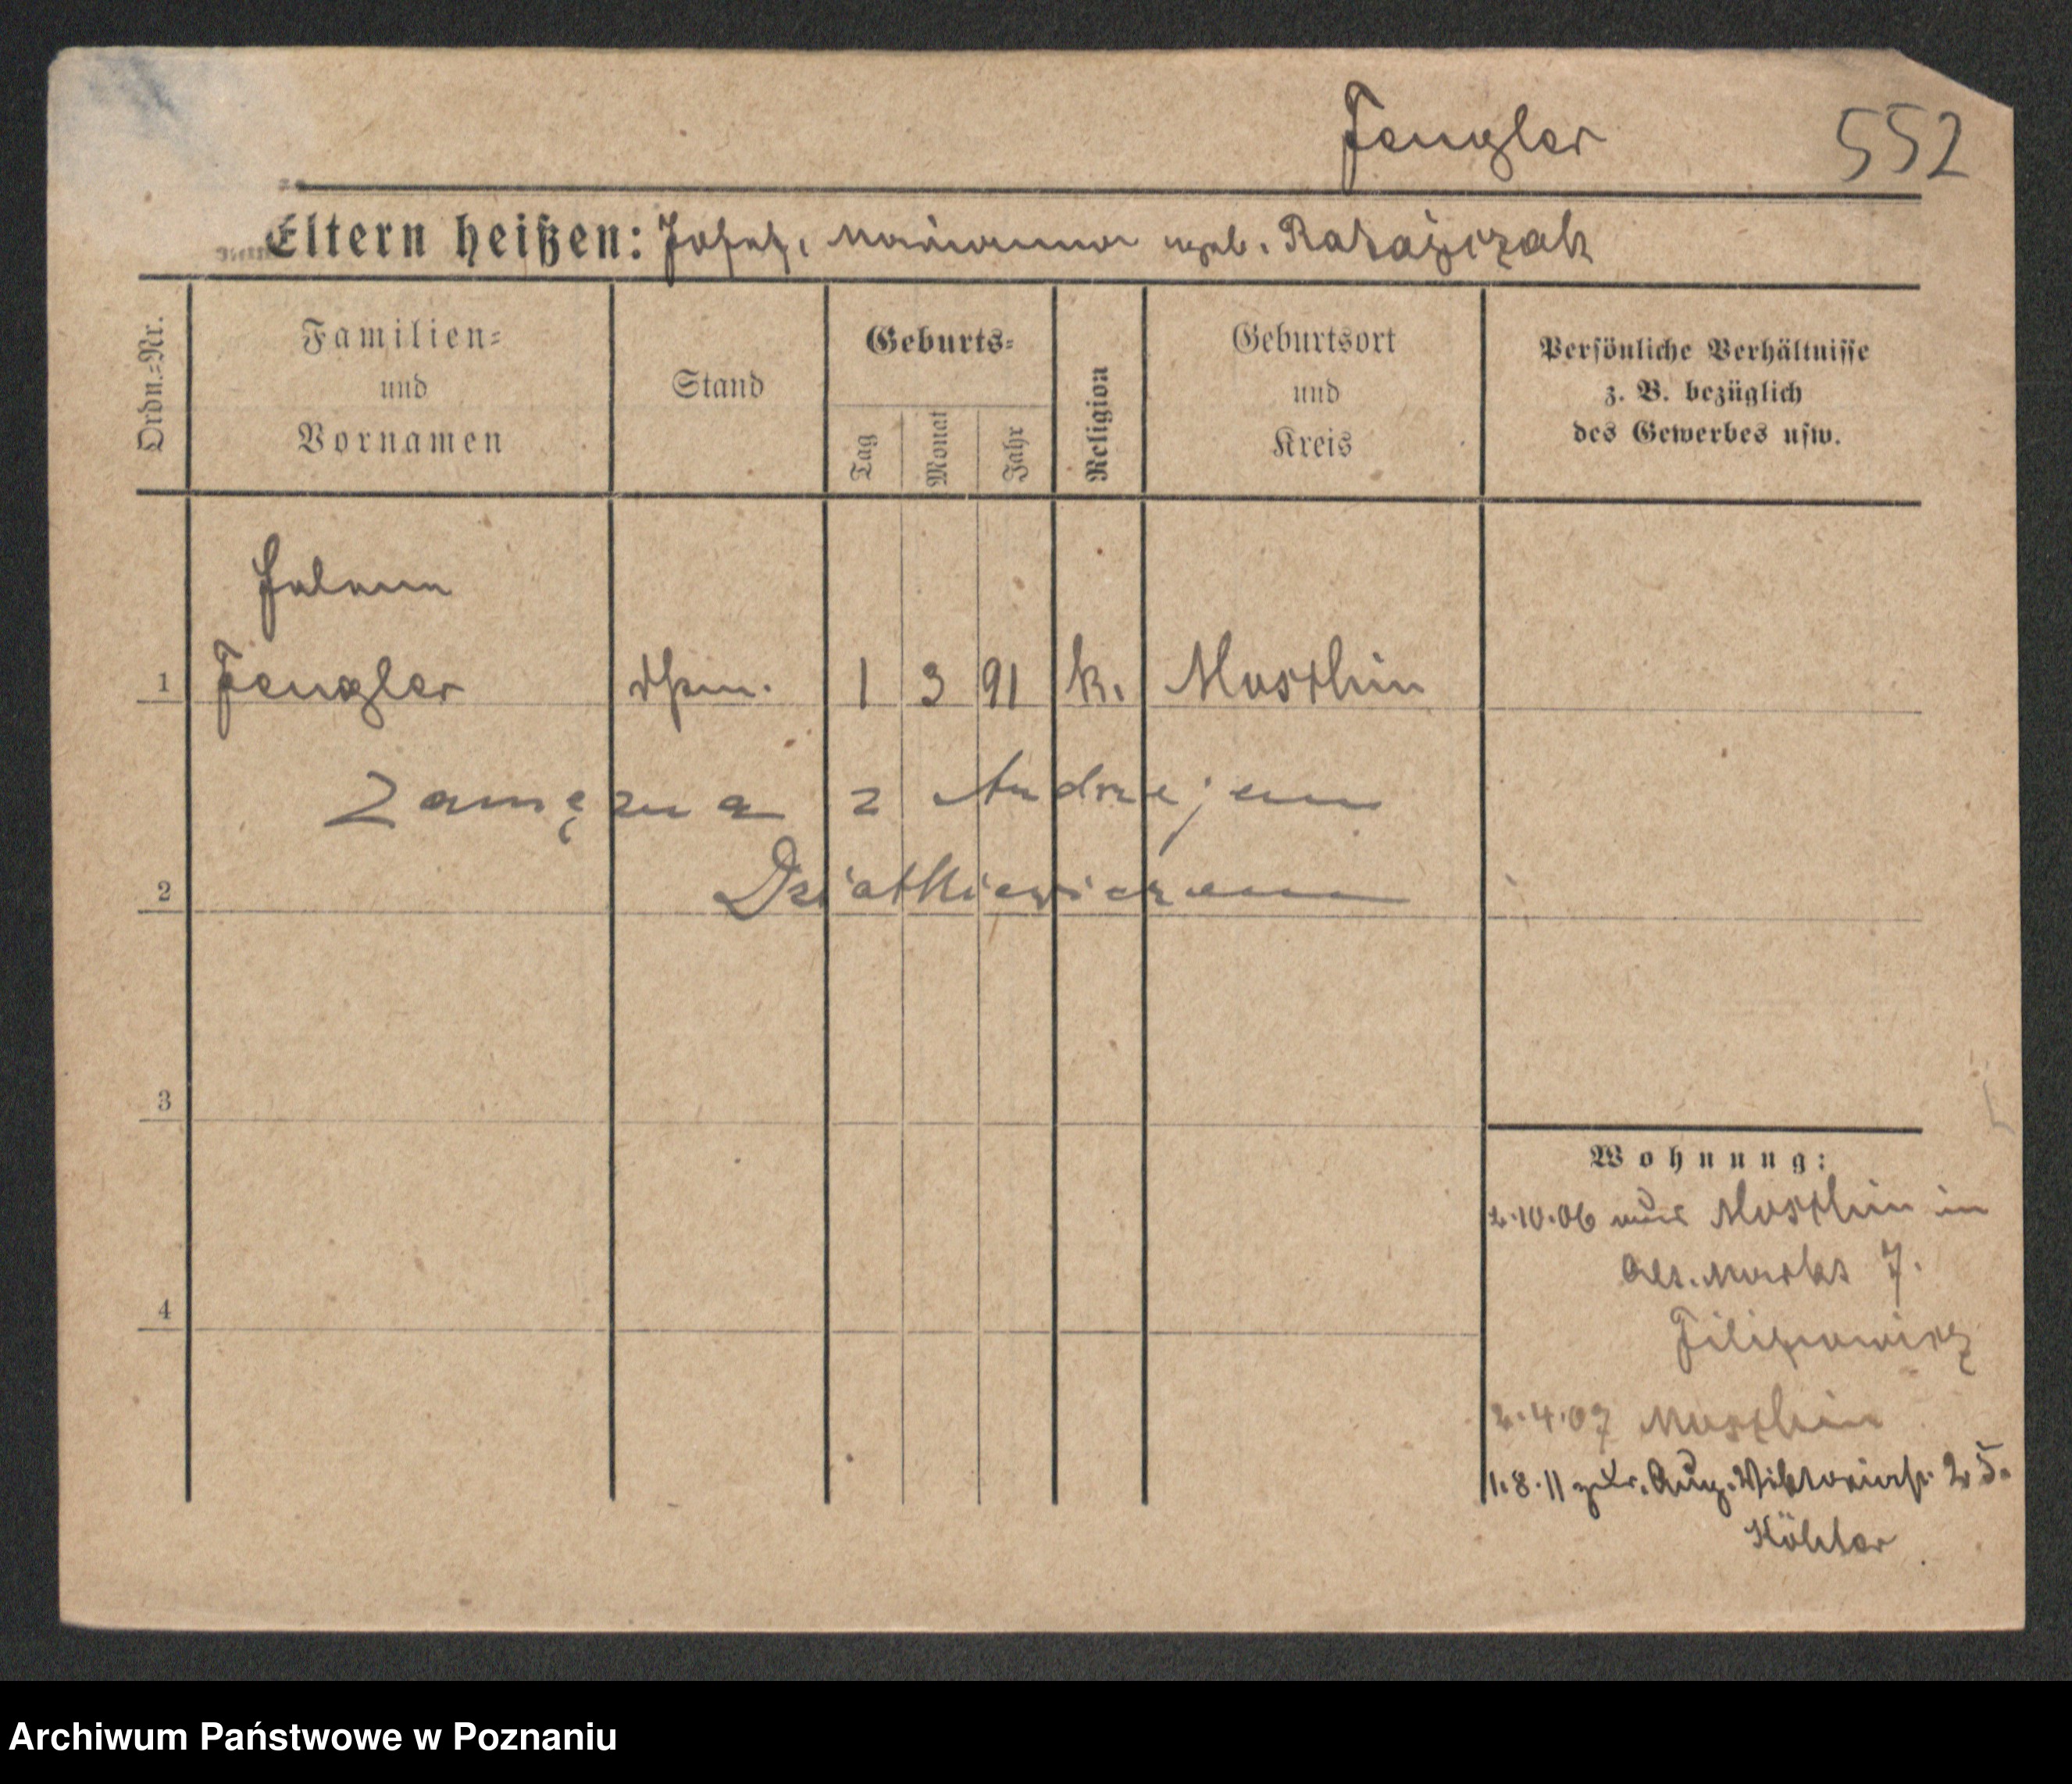 Fengler 552
Eltern heißen: Josef, Marianna geb. Ratajczak
Ordn.-Nr.
Familien-
und
Vornamen
Stand
Geburts-
Tag
Monat
Jahr
Religion
Geburtsort
und
Kreis
Persönliche Verhältnisse
z. B. bezüglich
des Gewerbes usw.
Helene
1 Fengler 1 3 91 k. Moschin
Zamężna z Andrzejem
2 Dziatkiewiczem
3
4
Wohnung:
2.10.06 aus Moschin in
Alt. Markt 7.
Filipowicz
2.4.07 Moschin
1.8.11 zur. Aug. Viktoriastr. 25.
Köhler
Archiwum Państwowe w Poznaniu